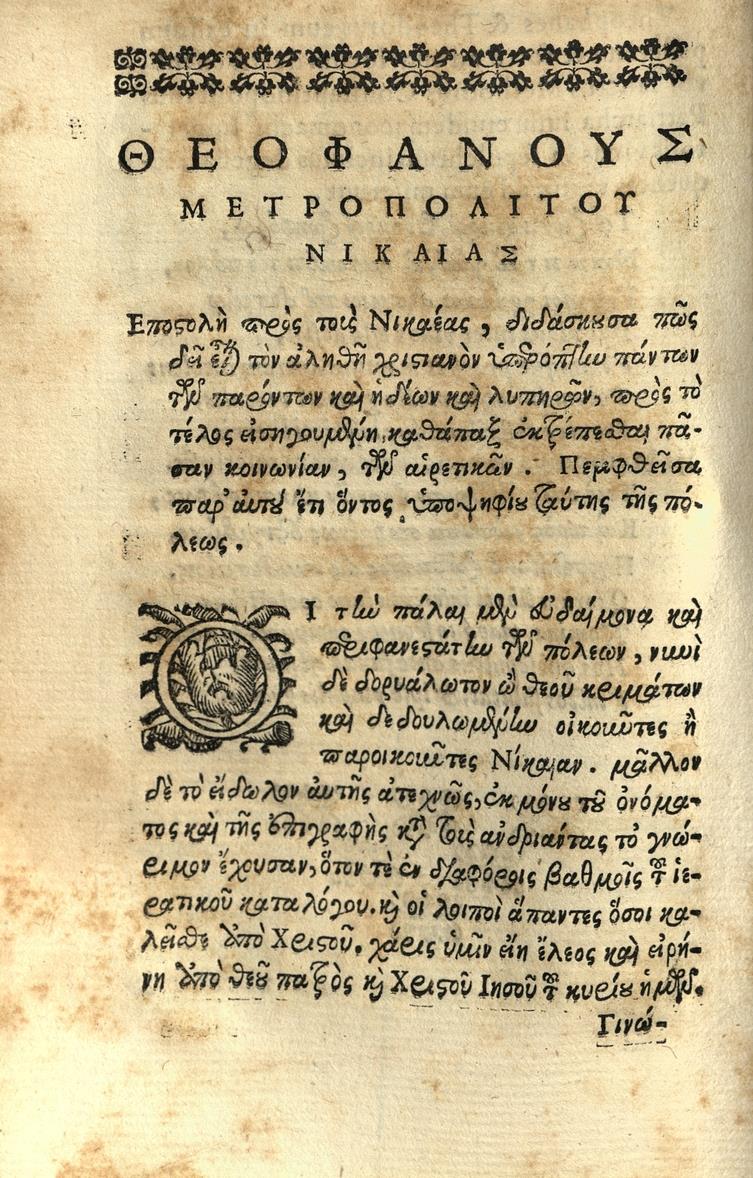 ΘΕΟΦΑΝΟΥΣ
ΜΕΤΡΟΠΟΛΙΤΟΥ
ΝΙΚΑΙΑΣ
Επιστολὴ πρὸς τοὺς Νικαέας, διδάσκουσα πῶς
δεῖ εἶναι τὸν ἀληθῆ χριστιανὸν ὑπερόπτην πάντων
τῶν παρόντων καὶ ἡδέων καὶ λυπηρῶν, πρὸς τὸ
τέλος εἰσηγουμένη καθάπαξ ἐκτρέπεσθαι πᾶ-
σαν κοινωνίαν, τῶν αἱρετικῶν. Πεμφθεῖσα
παρ' αὐτοῦ ἔτι ὄντος ὑποψηφίου ταύτης τῆς πό-
λεως.
ΟΙ τὴν πάλαι μὲν εὐδαίμονα καὶ
περιφανεστάτην τῶν πόλεων, νυνὶ
δὲ δορυάλωτον ἐκ θεοῦ κριμάτων
καὶ δεδουλωμένην οἰκοῦντες ἢ
παροικοῦντες Νίκαιαν. μᾶλλον
δὲ τὸ εἴδωλον ἀυτῆς ἀτεχνῶς, ἐκ μόνου τοῦ ὀνόμα-
τος καὶ τῆς ἐπιγραφῆς κατὰ τοὺς ἀνδριάντας τὸ γνώ-
ριμον ἔχουσαν, ὅτον τὲ ἐν διαφόροις βαθμοῖς τοῦ ἱε-
ρατικοῦ καταλόγου. καὶ οἱ λοιποὶ ἅπαντες ὅσοι κα-
λεῖσθε ἀπὸ Χριστοῦ. χάρις ὑμῖν εἴη ἔλεος καὶ εἰρή-
νη ἀπὸ θεοῦ πατρὸς καὶ Χριστοῦ Ιησοῦ τοῦ κυρίου ἡμῶν.
Γινώ-